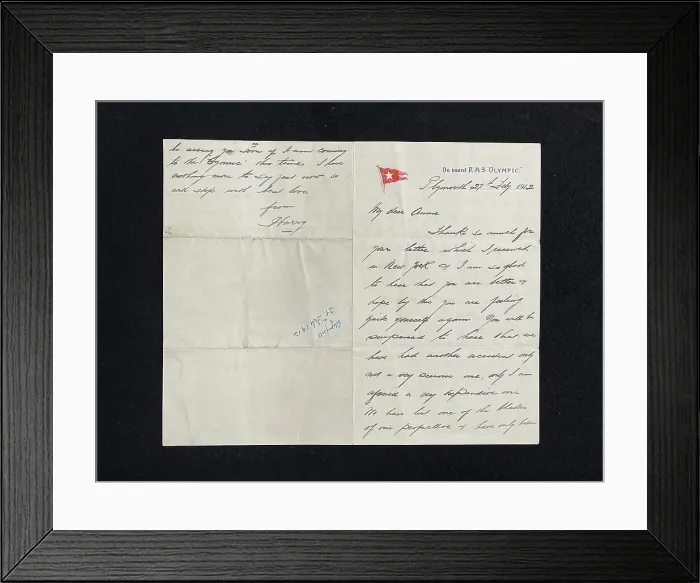 On board R.M.S. "OLYMPIC"
Plymouth 27th Feby. 1912
My dear Annie
Thanks so much for
your letter which I received
in New York & I am so glad
to hear that you are better &
hope by this you are feeling
quite yourself again. You will be
surprised to hear that we
have had another accident only
not a very serious one, only I am
afraid a very expensive one
We have lost one of the blades
of one propellor & have only been
be seeing you soon if I am coming
to the "Cymric" this time I have
nothing more to say just now so
will stop with best love
from
Harry